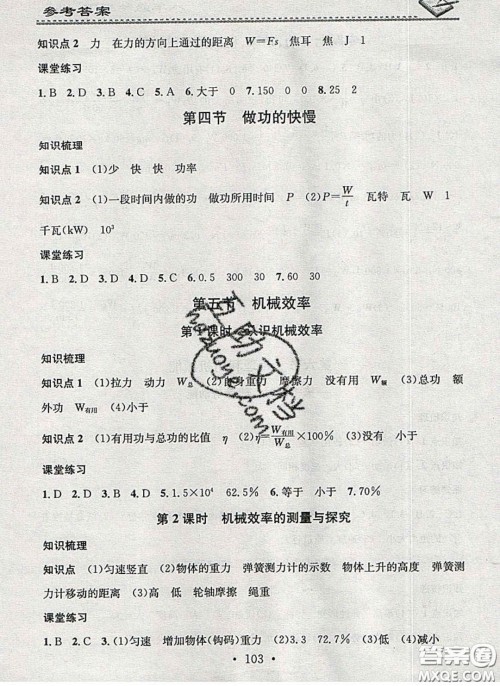 参考答案
知识点2 力 在力的方向上通过的距离 W=Fs 焦耳 焦 J 1
课堂练习
1.B 2.D 3.B 4.C 5.A 6.大于 0 7.150 0 0 8.25 2
第四节 做功的快慢
知识梳理
知识点1 (1)少 快 快 功率
知识点2 (1)一段时间内做的功 做功所用时间 P (2)P=W/t 瓦特 瓦 W 1
千瓦(kW) 10³
课堂练习
1.B 2.D 3.D 4.D 5.C 6.0.5 300 30 7.60 30
第五节 机械效率
第1课时 认识机械效率
知识梳理
知识点1 (1)拉力 动力 W总 (2)自身重力 摩擦力 没有用 W额 (3)总功 额
外功 W有用 (4)小于
知识点2 (1)有用功与总功的比值 η (2)η=W有用/W总×100% (3)没有 小于
课堂练习
1.D 2.D 3.A 4.D 5.1.5×10⁴ 62.5% 6.等于 小于 7.70%
第2课时 机械效率的测量与探究
知识梳理
知识点 (1)匀速竖直 (2)物体的重力 弹簧测力计的示数 物体上升的高度 弹簧测
力计移动的距离 (3)高 低 轮轴摩擦 绳重
课堂练习
1.B 2.C 3.(1)匀速 增加物体(钩码)重力 (2)3.3 72.7% (3)低 (4)减小
·103·
互助文档
hezuoye.com
答案圈
MXQE.COM